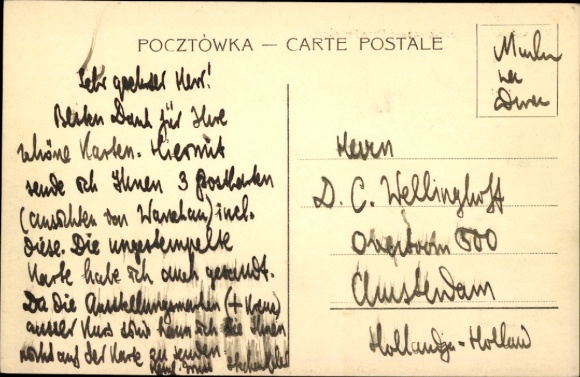 POCZTÓWKA — CARTE POSTALE
Sehr geehrter Herr!
Besten Dank für Ihre
schöne Karten. Hiermit
sende ich Ihnen 3 Postkarten
(ansichten von Warschau) incl.
diese. Die ungestempelte
Karte habe ich auch gesandt.
Da die Ausstellungsmarken (+ Kreuz)
ausser Kurs sind kann ich sie Ihnen
nicht auf der Karte zu senden.
Marken
Herrn
D. C. Wellinghoff
Overtoom 500
Amsterdam
Hollandja - Holland